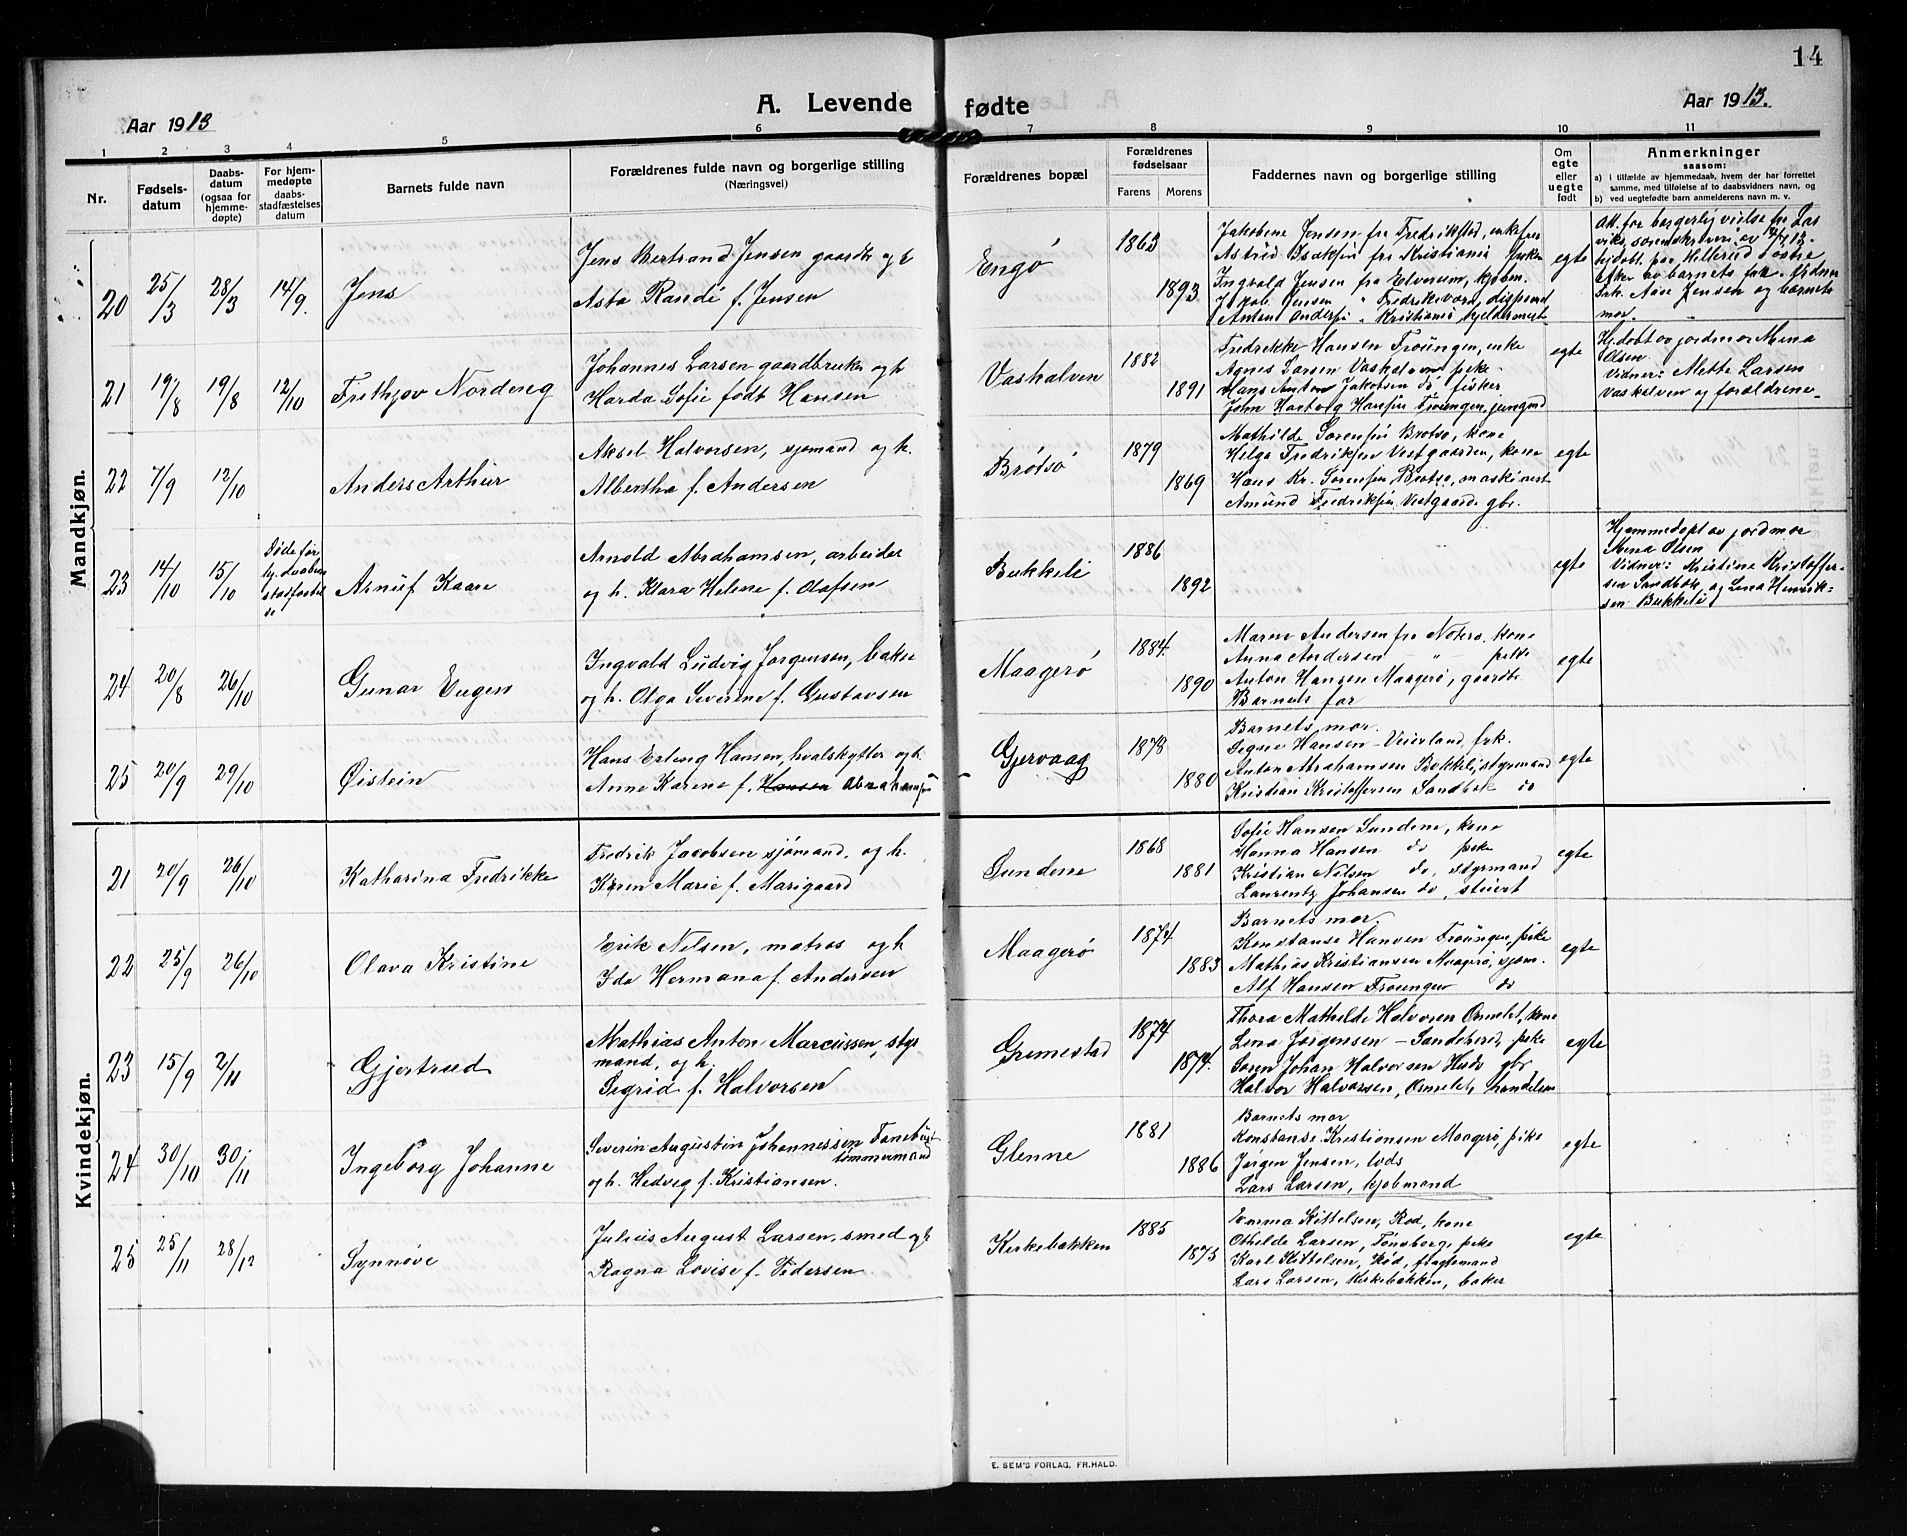 14
A. Levende fødte
Aar 1913
Aar 1913.
1 2 3 4 5 6 7 8 9 10 11
Nr.
Fødselsdatum
Daabsdatum (ogsaa for hjemmedøpte)
For hjemmedøpte daabsstadfæstelses datum
Barnets fulde navn
Forældrenes fulde navn og borgerlige stilling (Næringsvei)
Forældrenes bopæl
Forældrenes fødselsaar
Farens Morens
Faddernes navn og borgerlige stilling
Om egte eller uegte født
Anmerkninger
saasom:
a) i tilfælde av hjemmedaab, hvem der har forrettet samme, med tilføielse af to daabsvidners navn, og
b) ved uegtefødte barn anmelderens navn m. v.
Mandkjøn.
20 25/3 28/3 14/9. Jens
Jens Bertrand Jensen gaardb og h
Asta Randi f. Jensen
Engø 1863 1893
Jakobine Jensen fra Fredrikstad, enkefrue
Astrid Isaksen fra Kristiania
Ingvald Jensen fra Elverum, kjøbm.
Jakob Jensen " Fredriksvern,
Anton Andersen " Kristiania
egte
Att. for borgerlig vielse fra
sorenskriveri av
hjdøbt paa Hillerud
av barnets
frk. Aase Jensen og barnets
mor.
21 19/8 19/8 12/10 Frithjov Nordeng
Johannes Larsen gaardbruker og h
Harda Sofie født Hansen
Vashalven 1882 1891
Fredrikke Hansen Trøungen, enke
Agnes Larsen Vashalven pike
Hans Anton Jakobsen do fisker
John Hartvig Hansen Trøungen, jungmd
egte
Hj.døbt av jordmor Mina
Olsen
Vidner: Mette Larsen
Vaskalven og forældrene
22 7/9 12/10 Anders Arthur
Aksel Halvorsen, sjømand og h.
Albertha f. Andersen
Brøtsø 1879 1869
Mathilde Sørensen Brøtsø, kone
Helga Fredriksen Vestgaarden, kone
Hans Kr. Sørensen Brøtsø, maskinest
Amund Fredriksen Vestgaarde gbr.
egte
23 14/10 15/10 Døde før hj.daabens stadfæstelse Arnuf Kaare
Arnold Abrahamsen, arbeider
og h. Klara Helene f. Olafsen
Bukkeli 1886 1892
egte
Hjemmedøpt av jordmor
Mina Olsen
Vidner: Kristine Kristoffersen
Sandbæk og Lina Henriksen
Bukkeli
24 20/8 26/10 Gunar Eugen
Ingvald Ludvig Jørgensen, baker
og h. Olga Severine f. Gustavsen
Maagerø 1884. 1890
Maren Andersen fra Nøterø, kone
Anna Andersen — " — pike
Anton Hansen Maagerø, gaardb
Barnets far
egte
25 20/9 29/10 Øistein
Hans Erling Hansen, hvalskytter og h.
Anne Karene f. Hansen Abrahamsen
Gjervaag 1878 1880
Barnets mor.
Signe Hansen - Veierland, frk.
Anton Abrahamsen Bukkeli, styrmand
Kristian Kristoffersen Sandbæk do
egte
Kvindekjøn.
21 20/9 26/10 Katharina Fredrikke
Fredrik Jacobsen sjømand, og h.
Karen Marie f. Marigaard
Sundene 1868 1881
Sofie Hansen Sundene, kone
Hanna Hansen do pike
Kristian Nilsen do, styrmand
Laurentz Johansen do, stuert
egte
22 25/9 26/10 Olava Kristine
Erik Nelsen, matros og h
Ida Hermana f. Andersen
Maagerø 1874 1883
Barnets mor.
Konstanse Hansen Trøungen, pike
Mathias Kristiansen Maagerø, sjøm.
Alf Hansen Trøungen do
egte
23 15/9 2/11 Gjertrud
Mathias Anton Marcussen, styrmand, og h.
Sigrid f. Halvorsen
Grimestad 1874 1874.
Thora Mathilde Halvorsen Ormelet, kone
Lina Jørgensen - Sandeherred, pike
Søren Johan Halvorsen gbr
Halvor Halvorsen, Ormelet, handelsm
egte
24 30/10 30/11 Ingeborg Johanne
Severin Augustin Johannessen tømmermand
og h. Hedvig f. Kristiansen.
Glenne 1881 1886
Barnets mor
Konstanse Kristiansen Maagerø, pike
Jørgen Jensen, lods
Lars Larsen, kjøbmand
egte
25 25/11 28/12 Synnøve
Julius August Larsen, smed og h
Ragna Lovise f. Pedersen
Kirkebakken 1885 1875
Emma Kittelsen, Rød, kone
Othilde Larsen, Tønsberg, pike
Karl Kittelsen, Rød, fragtemand
Lars Larsen, Kirkebakken, baker
egte
E. SEM'S FORLAG, FR.HALD.